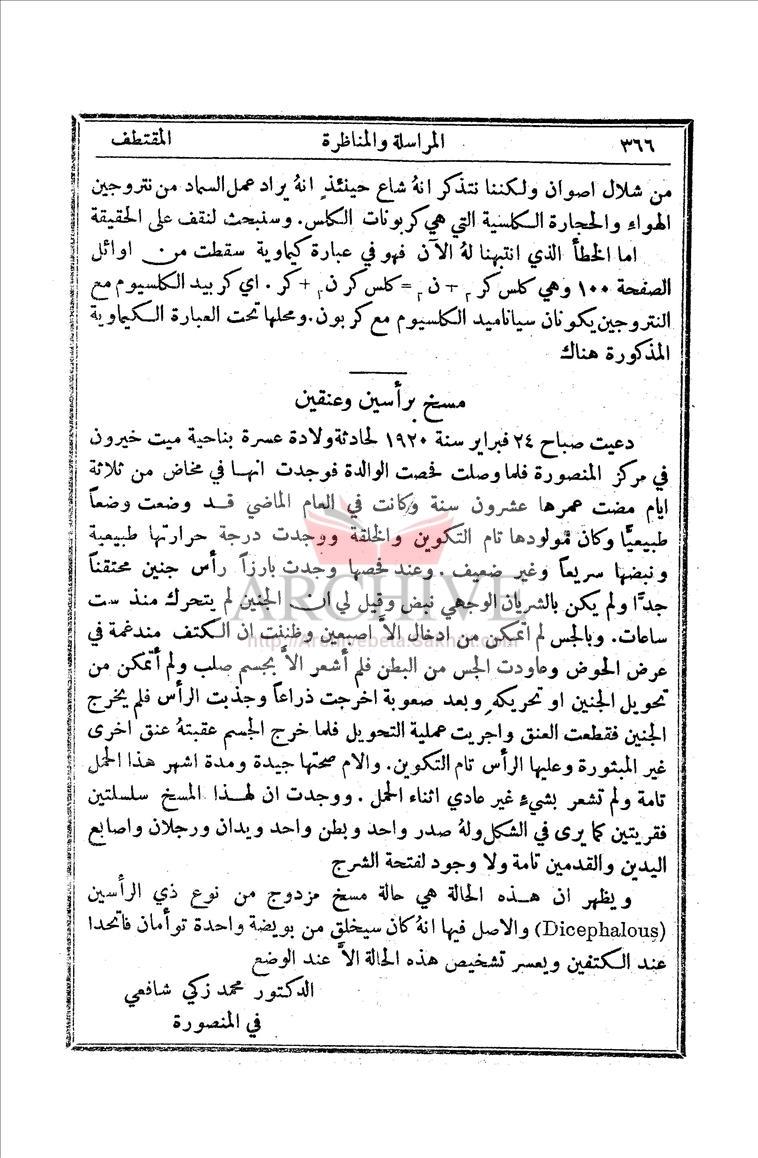 ٣٦٦ المراسلة والمناظرة المقتطف
من شلال اصوان ولكننا نتذكر انهُ شاع حينئذٍ انهُ يراد عمل السماد من نتروجين
الهواء والحجارة الكلسية التي هي كربونات الكلس. وسنبحث لنقف على الحقيقة
اما الخطأ الذي انتبهنا لهُ الآن فهو في عبارة كيماوية سقطت من اوائل
الصفحة ١٠٠ وهي كلس كر٢ + ن٢ = كلس كر ن٢ + كر. اي كربيد الكلسيوم مع
النتروجين يكونان سياناميد الكلسيوم مع كربون. ومحلها تحت العبارة الكيماوية
المذكورة هناك
مسخ برأسين وعنقين
دعيت صباح ٢٤ فبراير سنة ١٩٢٠ لحادثة ولادة عسرة بناحية ميت خيرون
في مركز المنصورة فلما وصلت فحصت الوالدة فوجدت انها في مخاض من ثلاثة
ايام مضت عمرها عشرون سنة وكانت في العام الماضي قد وضعت وضعاً
طبيعيًّا وكان مولودها تام التكوين والخلقة ووجدت درجة حرارتها طبيعية
ونبضها سريعاً وغير ضعيف. وعند فحصها وجدت بارزاً رأس جنين محتقناً
جدًّا ولم يكن بالشريان الوجهي نبض وقيل لي ان الجنين لم يتحرك منذ ست
ساعات. وبالجس لم اتمكن من ادخال الاَّ اصبعين وظننت ان الكتف مندغمة في
عرض الحوض وعاودت الجس من البطن فلم أشعر الاَّ بجسم صلب ولم أتمكن من
تحويل الجنين او تحريكهِ وبعد صعوبة اخرجت ذراعاً وجذبت الرأس فلم يخرج
الجنين فقطعت العنق واجريت عملية التحويل فلما خرج الجسم عقبتهُ عنق اخرى
غير المبثورة وعليها الرأس تام التكوين. والام صحتها جيدة ومدة اشهر هذا الحمل
تامة ولم تشعر بشيءٍ غير عادي اثناء الحمل. ووجدت ان لهذا المسخ سلسلتين
فقريتين كما يرى في الشكل ولهُ صدر واحد وبطن واحد ويدان ورجلان واصابع
اليدين والقدمين تامة ولا وجود لفتحة الشرج
ويظهر ان هذه الحالة هي حالة مسخ مزدوج من نوع ذي الرأسين
(Dicephalous) والاصل فيها انهُ كان سيخلق من بويضة واحدة توأمان فاتحدا
عند الكتفين ويعسر تشخيص هذه الحالة الاَّ عند الوضع
الدكتور محمد زكي شافعي
في المنصورة
ARCHIVE
http://Archivebeta.Sakhrit.com